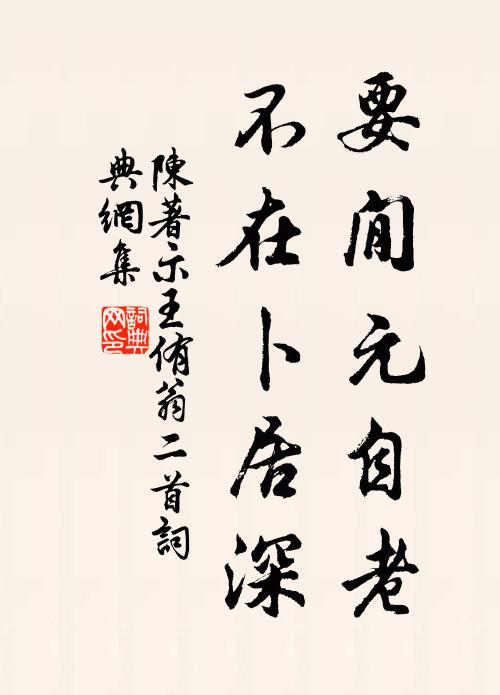 要閒元自老
不在卜居深
陳著示王侑翁二首詞
典網集
詞典网印